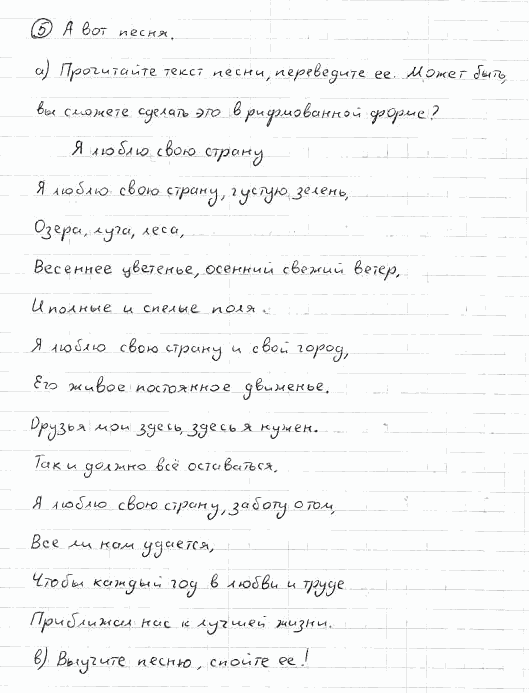 ⑤ А вот песня.
а) Прочитайте текст песни, переведите ее. Может быть,
вы сможете сделать это в рифмованной форме?
Я люблю свою страну
Я люблю свою страну, густую зелень,
Озера, луга, леса,
Весеннее цветенье, осенний свежий ветер,
И полные и спелые поля.
Я люблю свою страну и свой город,
Его живое постоянное движенье.
Друзья мои здесь, здесь я нужен.
Так и должно всё оставаться.
Я люблю свою страну, заботу о том,
Все ли нам удается,
Чтобы каждый год в любви и труде
Приближал нас к лучшей жизни.
в) Выучите песню, спойте ее!